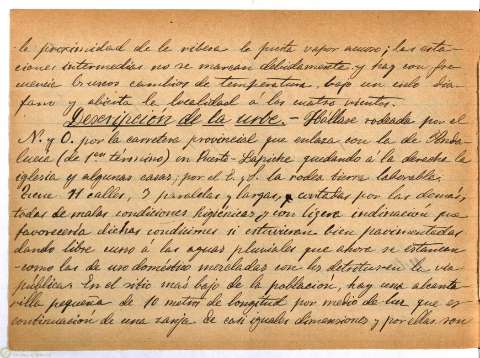 la proximidad de la ribera le presta vapor acuoso; las esta-
ciones intermedias no se marcan debidamente y hay con fre-
cuencia bruscos cambios de temperatura, bajo un cielo diá-
fano y abierta la localidad a los cuatro vientos.
Descripción de la urbe.- Hállase rodeada por el
N. y O. por la carretera provincial que enlaza con la de Anda-
lucía (de 1er término) en Puerto-Lápiche quedando a la derecha la
iglesia y algunas casas; por el E. y S. la rodea tierra laborable.
Tiene 11 calles, 3 paralelas y largas, cortadas por las demás,
todas de malas condiciones higiénicas y con ligera inclinación que
favorecería dichas condiciones si estuvieran bien pavimentadas
dando libre curso á las aguas pluviales que ahora se estancan
como las de uso doméstico mezcladas con los detritus en la vía
pública. En el sitio más bajo de la población, hay una alcanta-
rilla pequeña de 10 metros de longitud por medio de luz que es
continuación de una zanja de casi iguales dimensiones y por ellas son